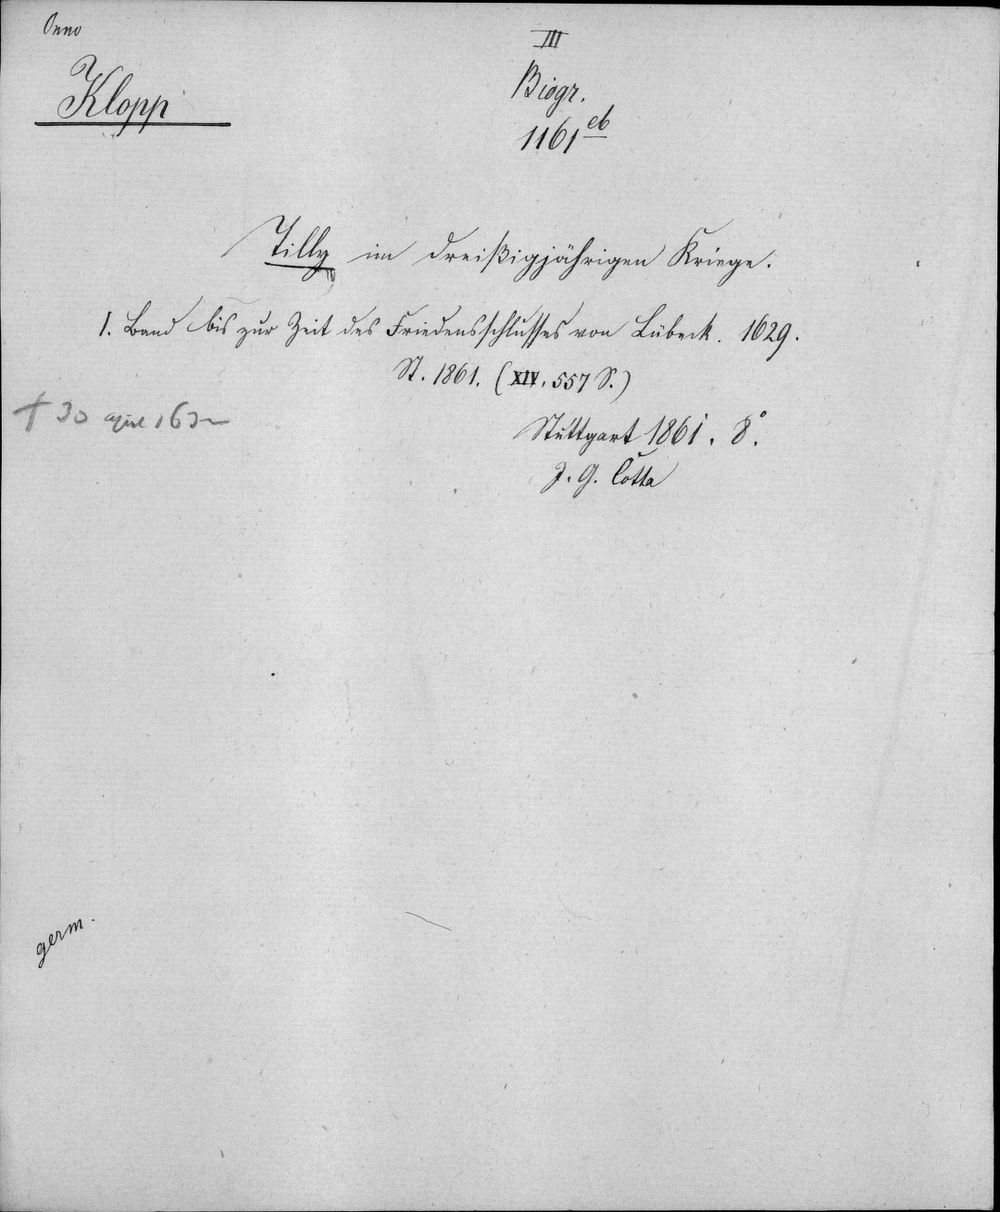 Onno
Klopp
III
Biogr.
1161 eb
Tilly im dreißigjährigen Kriege.
1. Band bis zur Zeit des Friedensschlusses von Lübeck. 1629.
St. 1861. (XIV. 557 S.)
† 30 april 1632
Stuttgart 1861. 8°.
J. G. Cotta
germ.